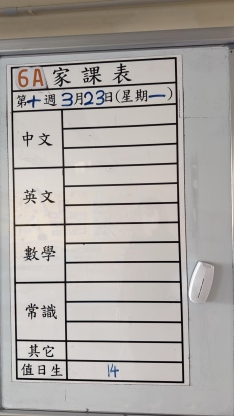 6A家課表
第十週3月23日(星期一)
中文
英文
數學
常識
其它
值日生 14